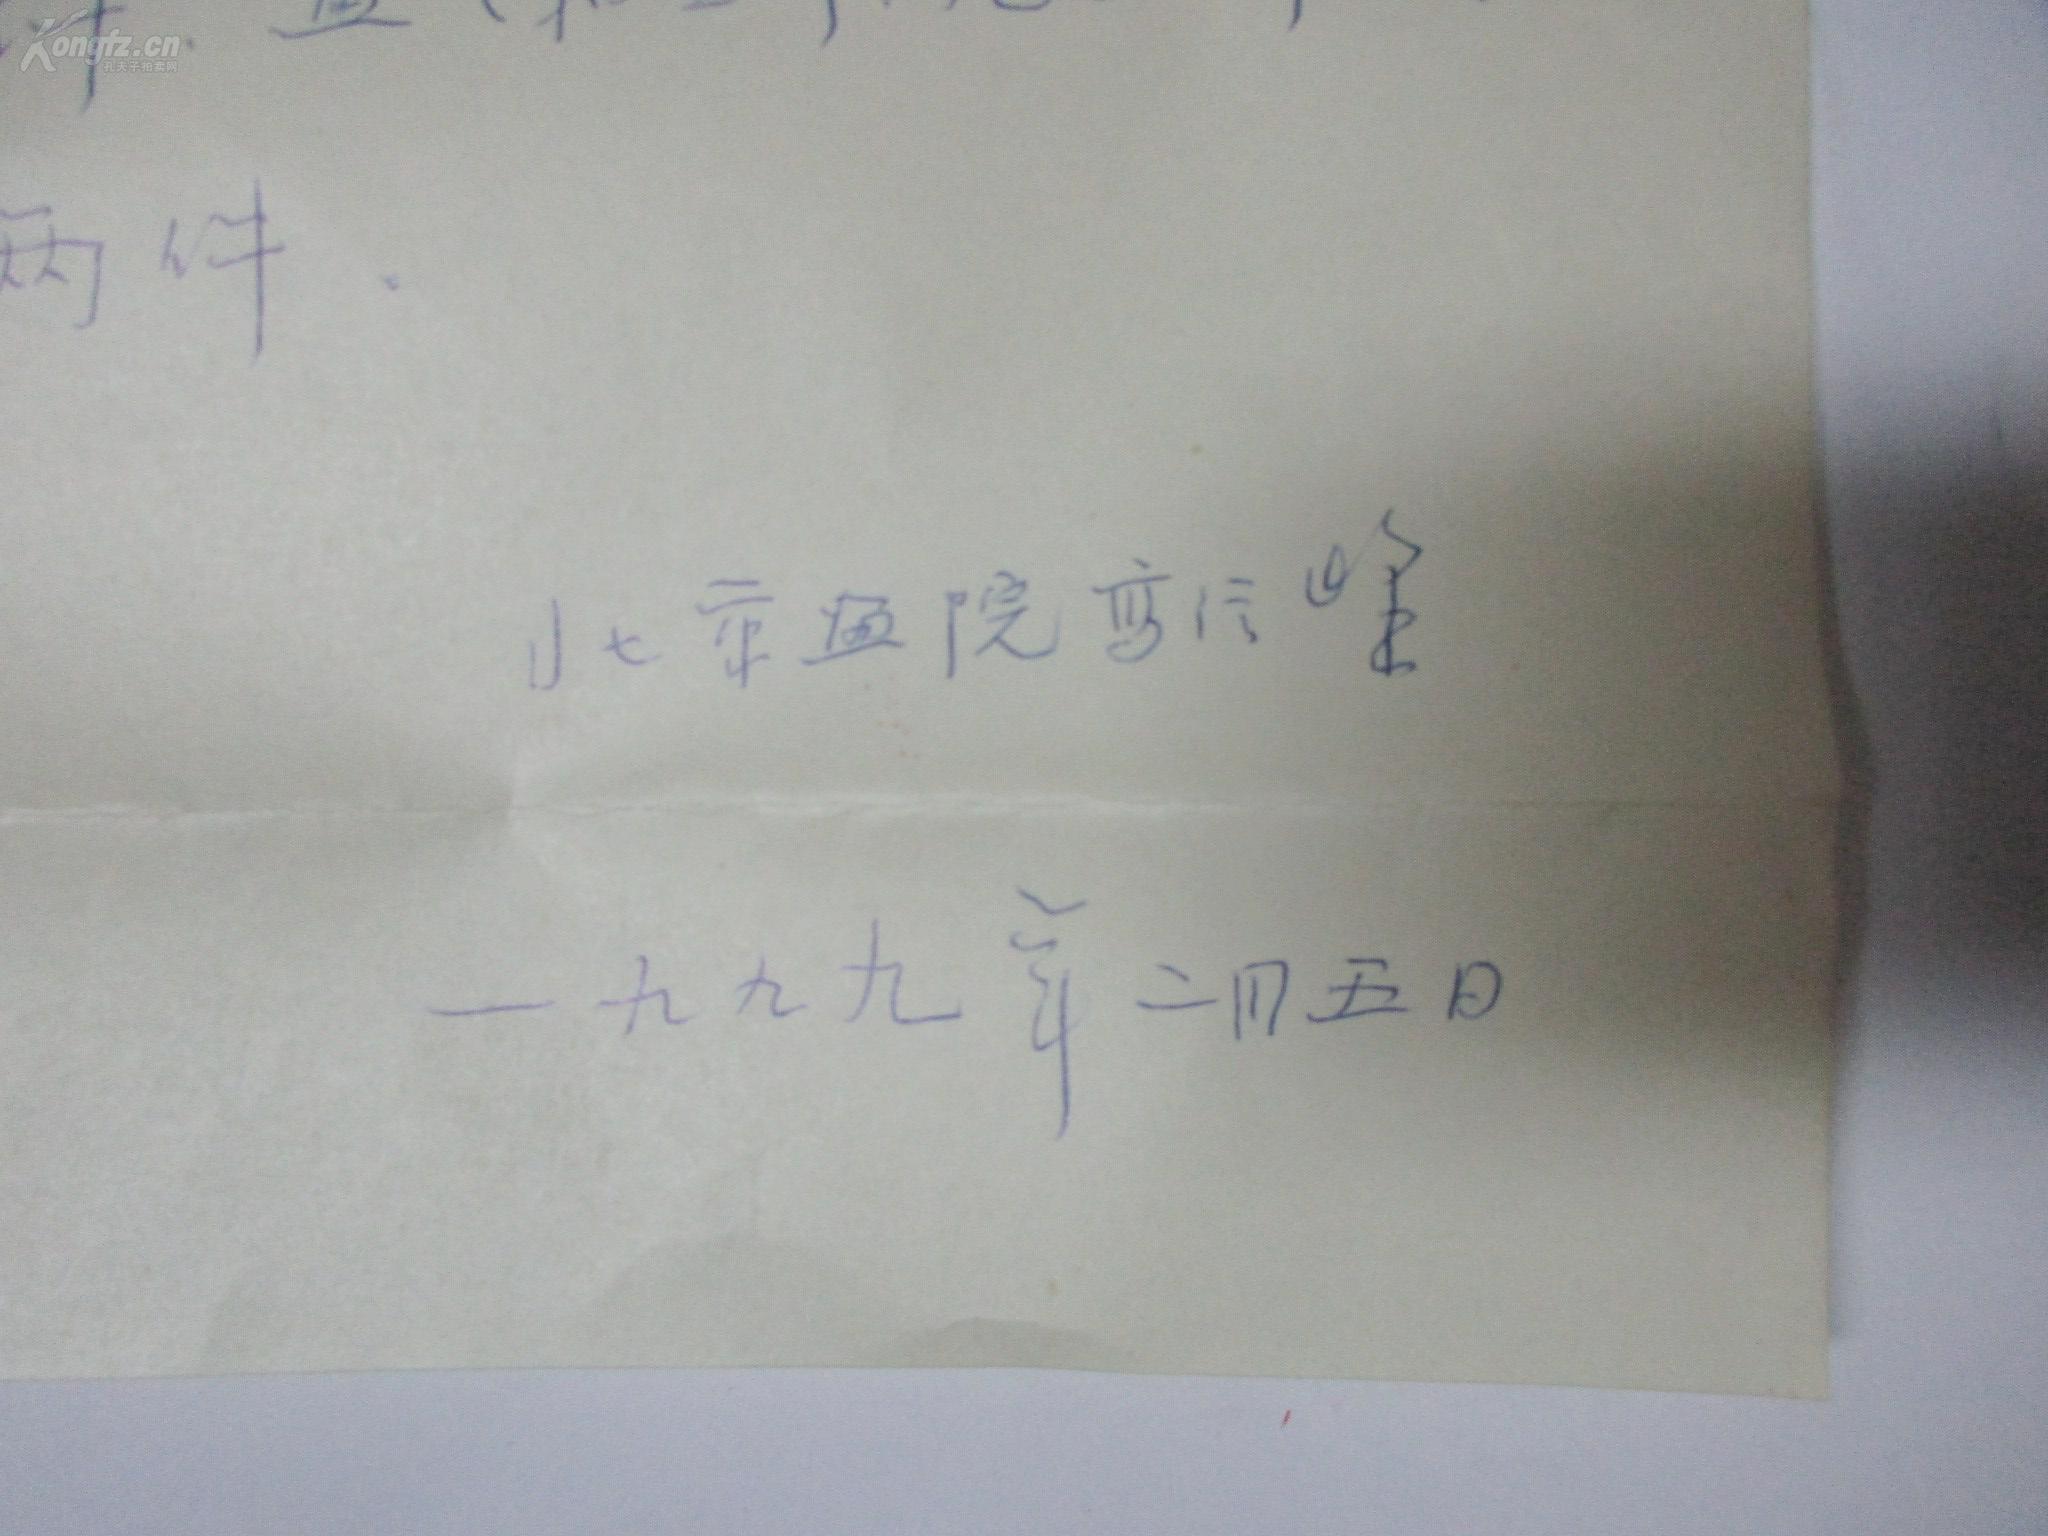 Kongfz.cn
孔夫子拍卖网
两件.
北京画院高信峰
一九九九年二月五日